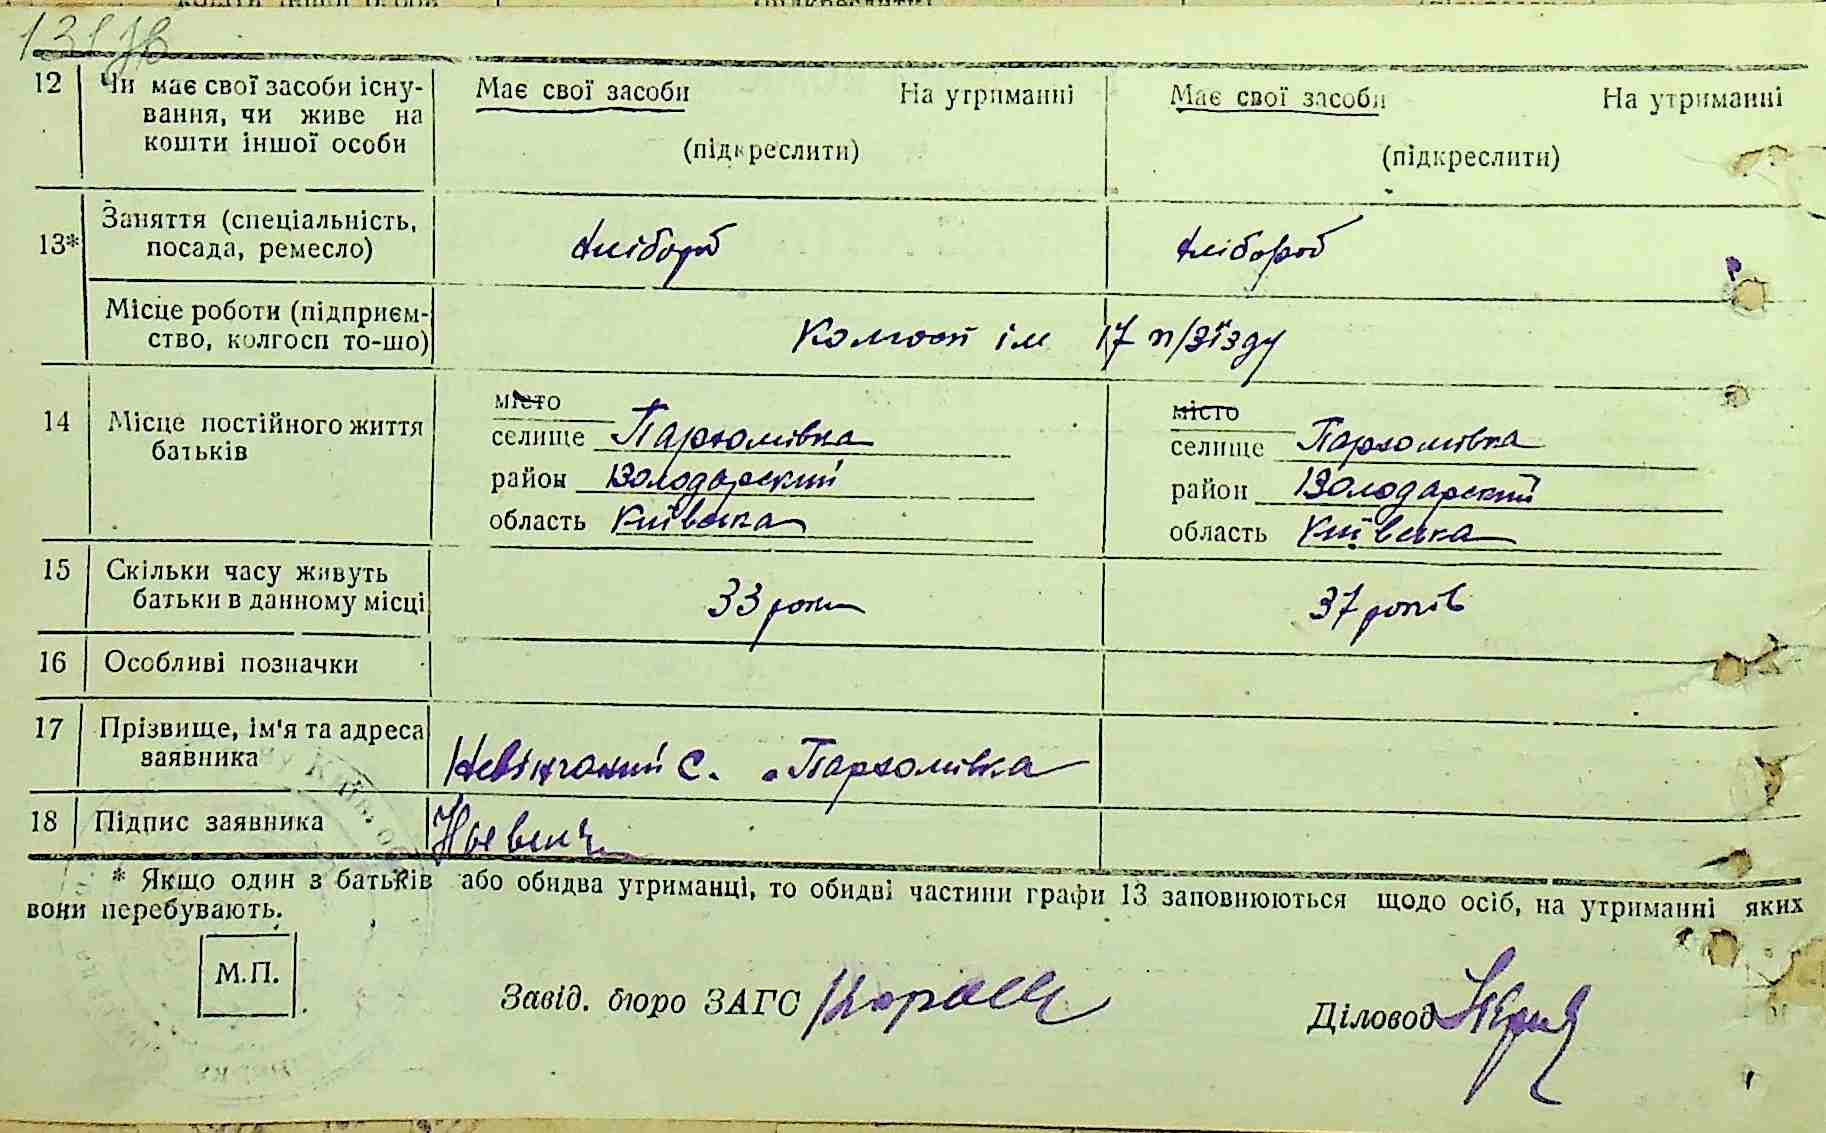 131зв
12 Чи має свої засоби існу- Має свої засоби На утриманні Має свої засоби На утриманні
вання, чи живе на
кошти іншої особи (підкреслити) (підкреслити)
13* Заняття (спеціальність, хлібороб хлібороб
посада, ремесло)
Місце роботи (підприєм- Колгосп ім 17 п/зїзду
ство, колгосп то-що)
місто місто
14 Місце постійного життя селище Пархомівка селище Пархомівка
батьків район Володарский район Володарский
область Київська область Київська
15 Скільки часу живуть 33 роки 37 років
батьки в данному місці
16 Особливі позначки
17 Прізвище, ім'я та адреса
заявника Невінчаний С. Пархомівка
18 Підпис заявника
* Якщо один з батьків або обидва утриманці, то обидві частини графи 13 заповнюються щодо осіб, на утриманні яких
вони перебувають.
М.П.
Завід. бюро ЗАГС Діловод